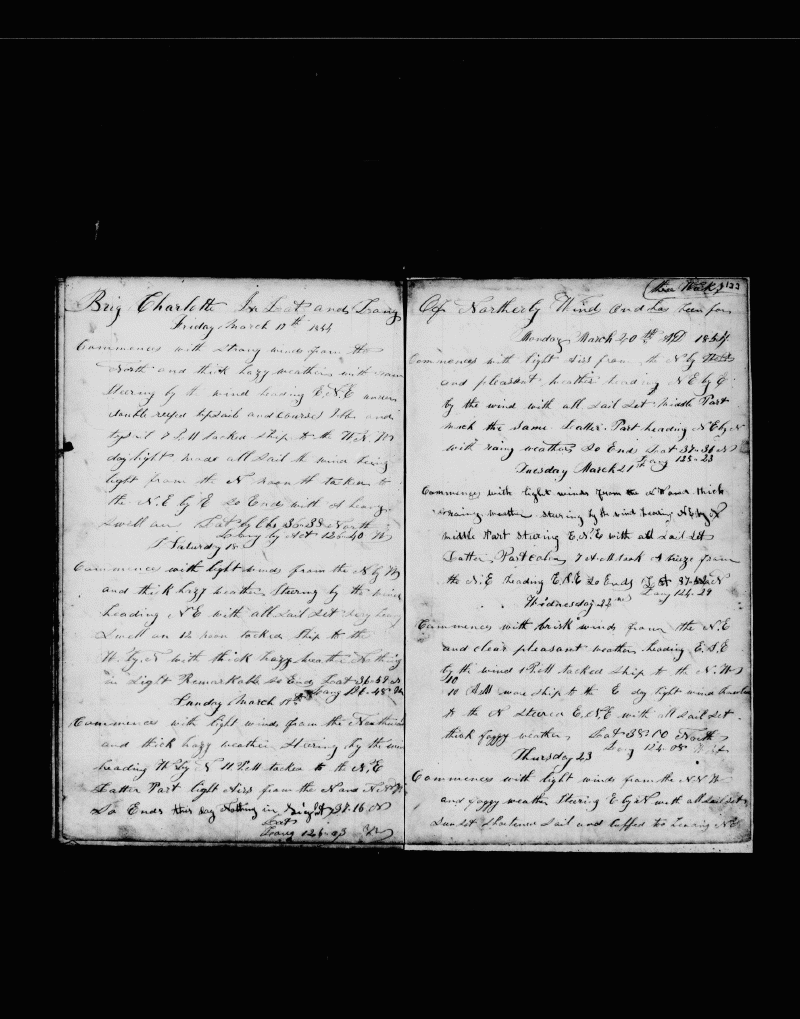 Brig Charlotte In Lat and Long
Friday March 17th 1854
Commences with Strong winds from the
North and thick hazy weather with rain
Steering by the wind heading E.N.E under
double reefed topsails and courses Jibb and
trysail 7 P.M tacked Ship to the W.N.W
daylight made all Sail the wind being
light from the N noon tacked to
the N.E by E So Ends with A heavy
Swell on Lat by Obs 36-38 North
Long by Act 126-40 W
Saturday 18
Commences with light winds from the N by W
and thick hazy weather Steering by the wind
heading N E with all Sail Set very heavy
Swell on 12 noon tacked Ship to the
W. by N with thick hazy weather Nothing
in Sight Remarkable So Ends Lat 36-59 N
Long 126-48 W
Sunday March 19th
Commences with light winds from the Northward
and thick hazy weather Steering by the wind
heading W by N 11 P.M tacked to the N.E
Latter Part light Airs from the N and N.N.W
So Ends this day Nothing in Sight 37-16 N
Lat
Long 126-03 W
three Weeks 122
Of Northerly Wind and has been for
Monday March 20th AD 1854
Commences with light Airs from the N by
and pleasant weather heading N E by E
by the wind with all Sail Set Middle Part
much the Same Latter Part heading N E by N
with rainy weather So Ends Lat 37-36 N
Long 125-23
Tuesday March 21th
Commences with light winds from the and thick
raining weather Steering by the wind heading N.E by N
middle Part Steering E.N.E with all Sail Set
Latter Part Calm 7 A.M took A breze from
the N.E heading E.S.E So Ends Lat 37- N
Long 124-29
Wednesday 22nd
Commences with brisk winds from the N.E
and clear pleasant weather heading E.S.E
by the wind 1 P.M tacked Ship to the N.W
10
10 P.M wore Ship to the E day light wind
to the N Steered E.N.E with all Sail Set
thick foggy weather Lat 38-10 North
Long 124-08 West
Thursday 23
Commences with light winds from the N.N.W
and foggy weather Steering E by N with all Sail Set
Sun Set Shortened Sail and luffed too heading N.E